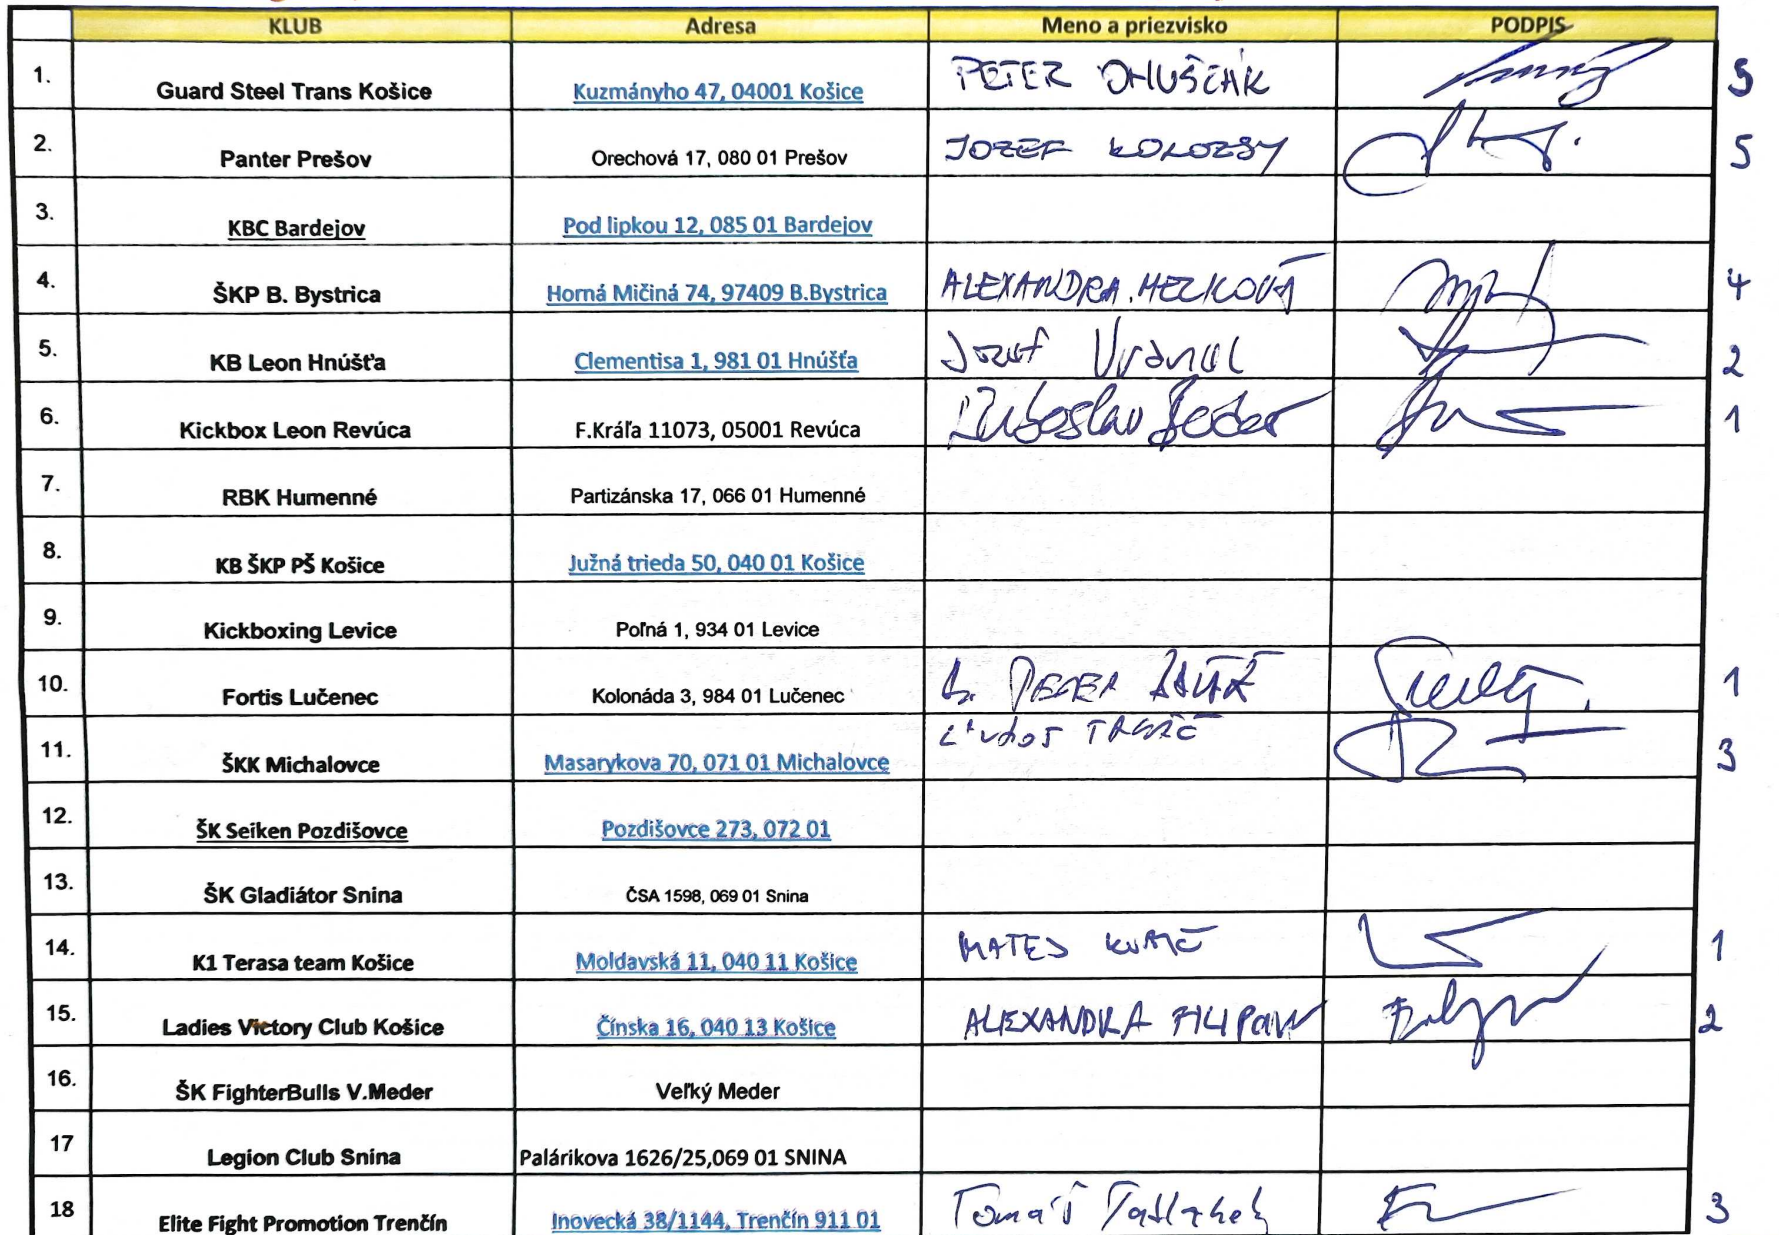 KLUB Adresa Meno a priezvisko PODPIS
1. Guard Steel Trans Košice Kuzmányho 47, 04001 Košice PETER ONUŠČÁK 5
2. Panter Prešov Orechová 17, 080 01 Prešov JOZEF KOLOZSY 5
3. KBC Bardejov Pod lipkou 12, 085 01 Bardejov
4. ŠKP B. Bystrica Horná Mičiná 74, 97409 B.Bystrica ALEXANDRA 4
5. KB Leon Hnúšťa Clementisa 1, 981 01 Hnúšťa Jozef 2
6. Kickbox Leon Revúca F.Kráľa 11073, 05001 Revúca Ľuboslav 1
7. RBK Humenné Partizánska 17, 066 01 Humenné
8. KB ŠKP PŠ Košice Južná trieda 50, 040 01 Košice
9. Kickboxing Levice Poľná 1, 934 01 Levice
10. Fortis Lučenec Kolonáda 3, 984 01 Lučenec 1
11. ŠKK Michalovce Masarykova 70, 071 01 Michalovce 3
12. ŠK Seiken Pozdišovce Pozdišovce 273, 072 01
13. ŠK Gladiátor Snina ČSA 1598, 069 01 Snina
14. K1 Terasa team Košice Moldavská 11, 040 11 Košice MATEJ 1
15. Ladies Victory Club Košice Čínska 16, 040 13 Košice ALEXANDRA 2
16. ŠK FighterBulls V.Meder Veľký Meder
17 Legion Club Snina Palárikova 1626/25,069 01 SNINA
18 Elite Fight Promotion Trenčín Inovecká 38/1144, Trenčín 911 01 Tomáš 3